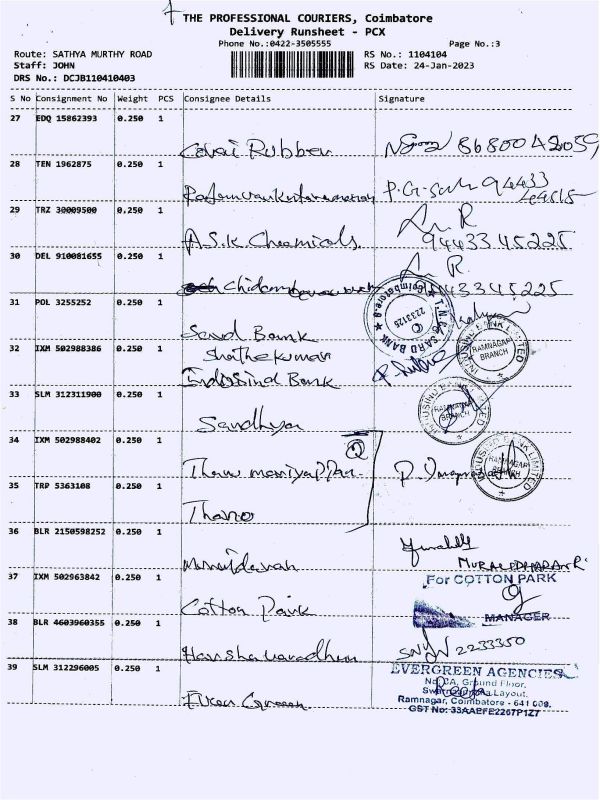 THE PROFESSIONAL COURIERS, Coimbatore
Delivery Runsheet - PCX
Phone No.:0422-3505555
Page No.:3
Route: SATHYA MURTHY ROAD
RS No.: 1104104
Staff: JOHN
RS Date: 24-Jan-2023
DRS No.: DCJB110410403
S No Consignment No Weight PCS Consignee Details Signature
27 EDQ 15862393 0.250 1
Covai Rubber 8680042059
28 TEN 1962875 0.250 1
29 TRZ 30009500 0.250 1
A.S.K. Chemicals 9443345225
30 DEL 910081655 0.250 1
31 POL 3255252 0.250 1
Sard Bank
T.N.G. SARD BANK
Coimbatore-9
2233125
32 IXM 502988386 0.250 1
Indusind Bank
INDUSIND BANK LIMITED
RAMNAGAR
BRANCH
33 SLM 312311900 0.250 1
Sandhya
INDUSIND BANK LIMITED
RAMNAGAR
BRANCH
34 IXM 502988402 0.250 1
INDUSIND BANK LIMITED
RAMNAGAR
BRANCH
35 TRP 5363108 0.250 1
36 BLR 2150598252 0.250 1
MURALEDHARAN R
37 IXM 502963842 0.250 1
For COTTON PARK
Cotton Park
MANAGER
38 BLR 4603960355 0.250 1
Harshavaradhan 2233350
39 SLM 312296005 0.250 1
EVERGREEN AGENCIES
Ground Floor,
Layout,
Ramnagar, Coimbatore - 641 009.
GST No: 33AAEFE2267P1Z7
Ever Green